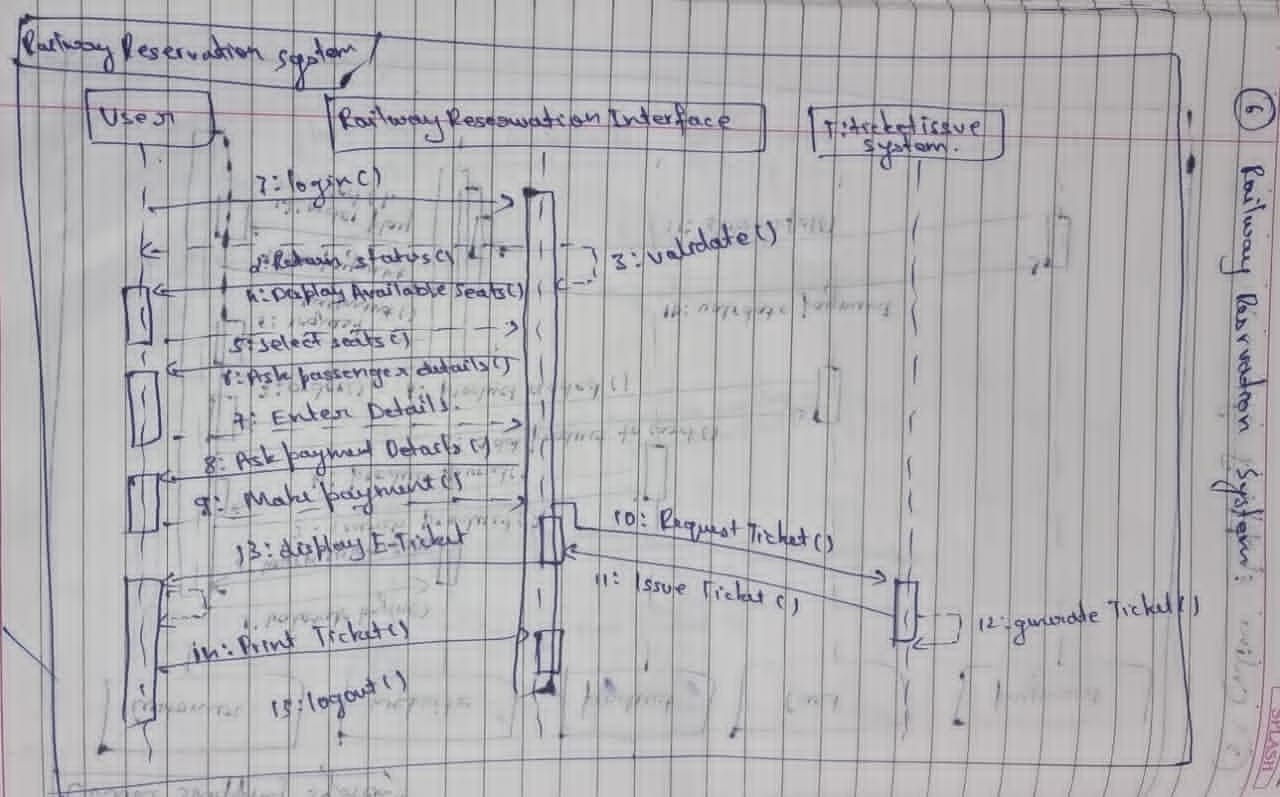 Railway Reservation System
User
Railway Reservation Interface
T:ticket issue
System.
1:login()
2:Return status()
3:validate()
4:Display Available seats()
5:select seats()
6:Ask passenger details()
7: Enter Details.
8: Ask payment Details()
9: Make payment()
10: Request Ticket()
13: display E-Ticket
11: Issue Ticket()
12:generate Ticket()
14: Print Ticket()
15:logout()
6
Railway Reservation System:
SPLASH